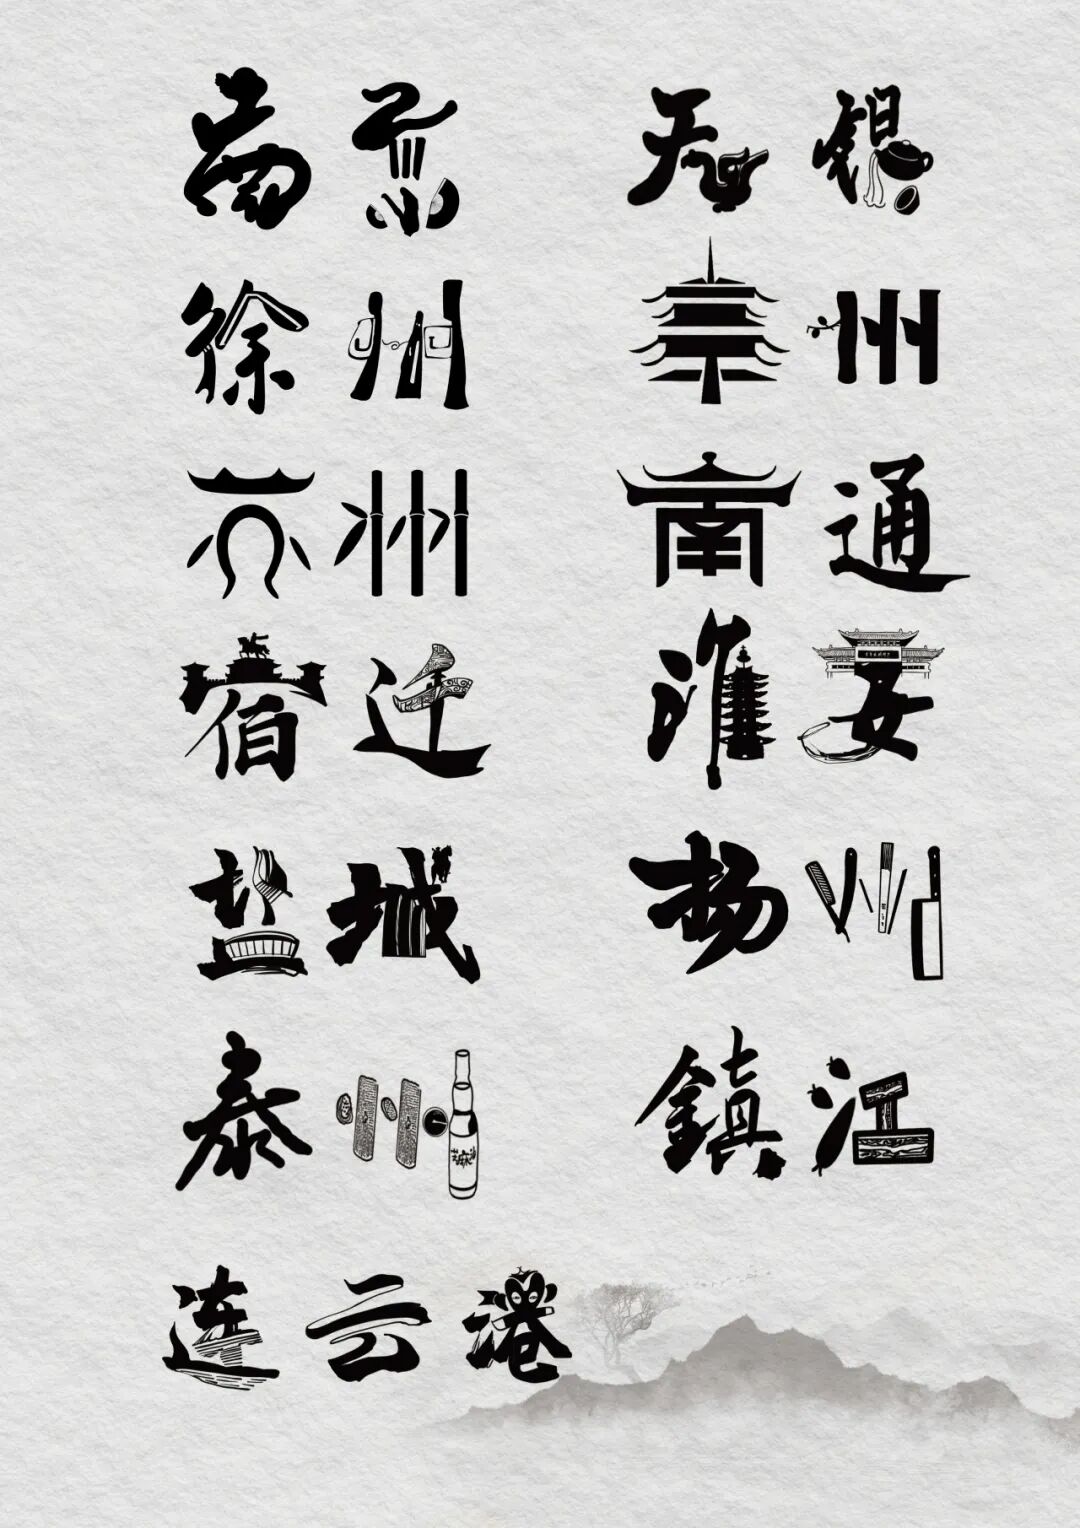 南京 无锡
徐州 常州
苏州 南通
宿迁 淮安
盐城 扬州
泰州 鎮江
芝麻油
连云港